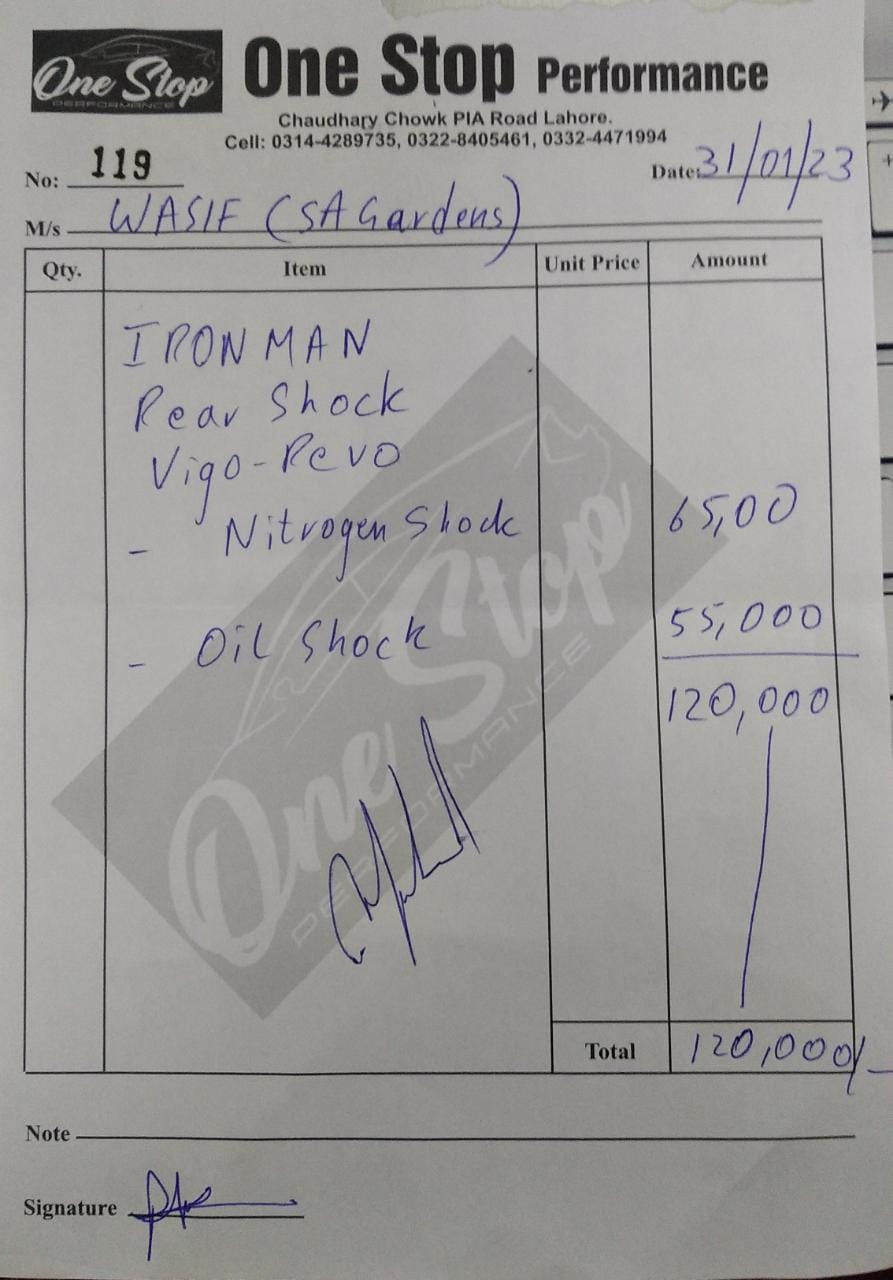 One Stop
PERFORMANCE
One Stop Performance
Chaudhary Chowk PIA Road Lahore.
Cell: 0314-4289735, 0322-8405461, 0332-4471994
No: 119
Date: 31/01/23
M/s WASIF (SA Gardens)
Qty. Item Unit Price Amount
IRONMAN
Rear Shock
Vigo-Revo
- Nitrogen Shock 65,00
- Oil Shock 55,000
120,000
One Stop
PERFORMANCE
Total 120,000/-
Note
Signature